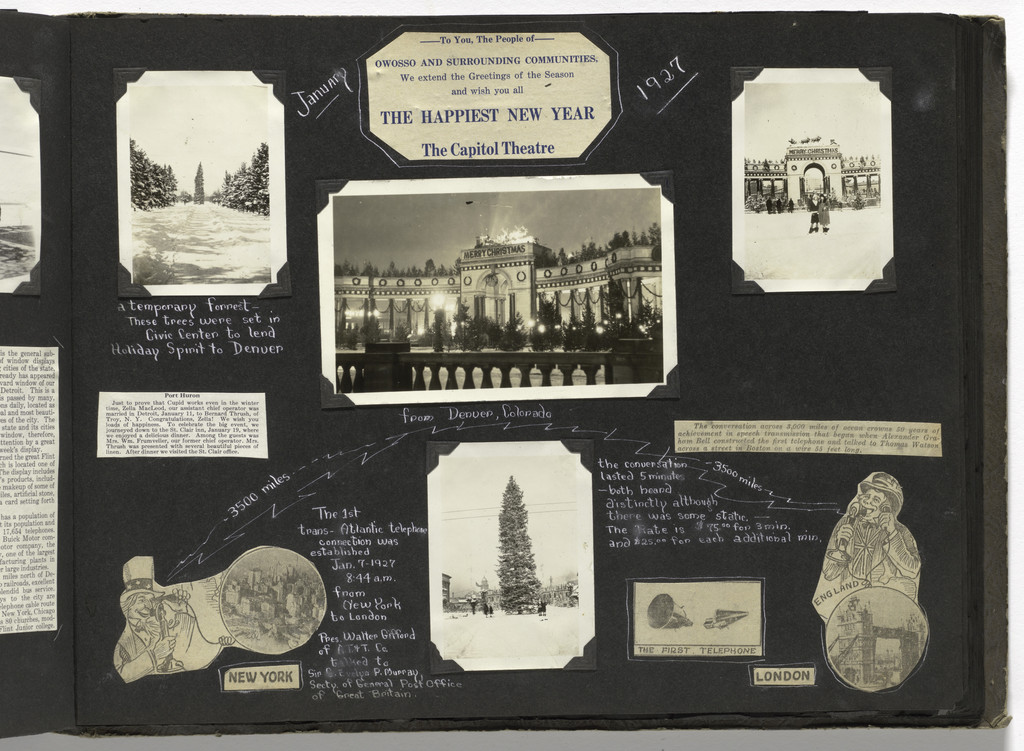 January
1927
—To You, The People of—
OWOSSO AND SURROUNDING COMMUNITIES.
We extend the Greetings of the Season
and wish you all
THE HAPPIEST NEW YEAR
The Capitol Theatre
MERRY CHRISTMAS
MERRY CHRISTMAS
a temporary forrest—
These trees were set in
Civic Center to lend
Holiday Spirit to Denver
from Denver, Colorado
is the general
of window displays
cities of the state,
ready has appeared
vard window of our
Detroit. This is a
is passed by many,
daily, located as
al and most beauti-
es of the city. The
state and its cities
window, therefore,
attention by a great
week's display.
rned the great Flint
ch is located one of
The display includes
's products, includ-
makeup of some of
iles, artificial stone,
a card setting forth
has a population of
t its population and
17,634 telephones.
Buick Motor com-
otor company, the
, one of the largest
facturing plants in
r large industries.
miles north of De-
railroads, excellent
plendid bus service.
ys to the city are
lephone cable route
New York, Chicago
s 80 churches,
Flint Junior college.
Port Huron
Just to prove that Cupid works even in the winter
time, Zella MacLeod, our assistant chief operator was
married in Detroit, January 11, to Bernard Thrush, of
Troy, N. Y. Congratulations, Zella! We wish you
loads of happiness. To celebrate the big event, we
journeyed down to the St. Clair inn, January 19, where
we enjoyed a delicious dinner. Among the guests was
Mrs. Wm. Frumveller, our former chief operator. Mrs.
Thrush was presented with several beautiful pieces of
linen. After dinner we visited the St. Clair office.
The conversation across 3,500 miles of ocean crowns 50 years of
achievement in speech transmission that began when Alexander Gra-
ham Bell constructed the first telephone and talked to Thomas Watson
across a street in Boston on a wire 55 feet long.
-3500 miles-
-3500 miles-
The 1st
trans-Atlantic telephone
connection was
established
Jan. 7-1927
8:44 a.m.
from
New York
to London
Pres. Walter Gifford
of A.T.&T. Co.
talked to
Sir P. Murray
Secty. of General Post Office
of Great Britain.
the conversation
lasted 5 minutes
—both heard
distinctly although
there was some static.—
The Rate is $75.00 for 3 min.
and $25.00 for each additional min.
NEW YORK
THE FIRST TELEPHONE
ENGLAND
LONDON